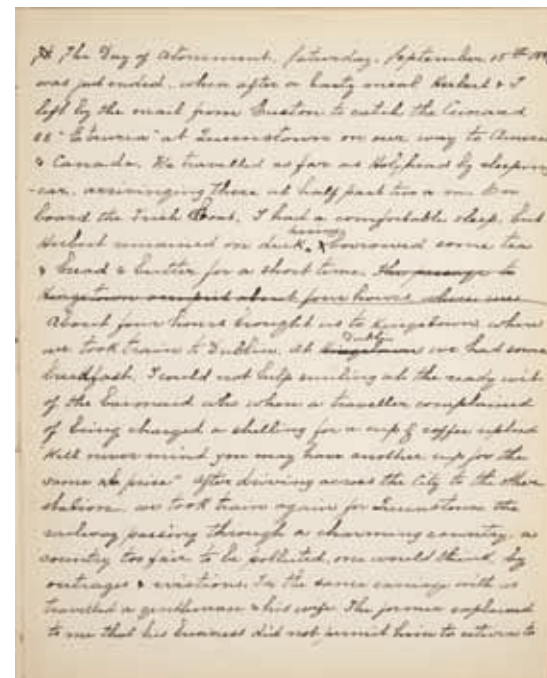 The Day of Atonement, Saturday, September 15th 188
was just ended, when after a hasty meal Herbert & I
left by the mail from Euston to catch the Cunard
SS "Etruria" at Queenstown on our way to America
& Canada. We travelled as far as Holyhead by sleeping
-car, arriving there at half past two a.m. On
board the Irish Boat, I had a comfortable sleep, but
Herbert remained on deck, having borrowed some tea
& bread & butter for a short time. The passage to
Kingstown occupied about four hours, where we
About four hours brought us to Kingstown, where
we took train to Dublin. At Kingstown Dublin we had some
breakfast. I could not help smiling at the ready wit
of the barmaid who when a traveller complained
of being charged a shilling for a cup of coffee replied
Well never mind you may have another cup for the
same price" After driving across the City to the other
station, we took train again for Queenstown the
railway passing through a charming country, a
country too fair to be polluted, one would think, by
outrages & evictions. In the same carriage with us
travelled a gentleman & his wife. The former explained
to me that his business did not permit him to return to